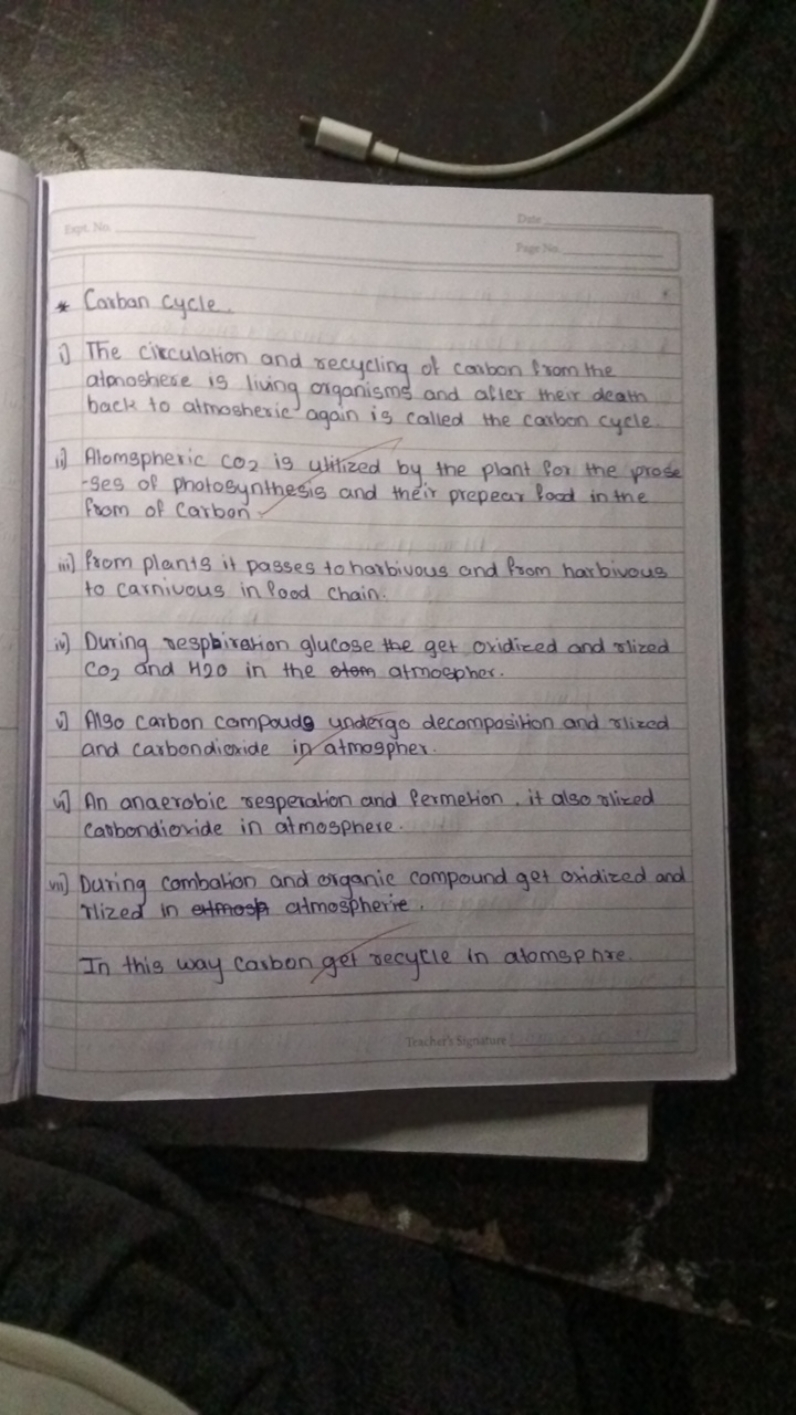 Expt. No.
Date
Page No.
* Carban cycle.
i) The circulation and recycling of carbon from the
atmoshere is living organisms and after their death
back to atmosheric again is called the carbon cycle.
ii) Atomspheric CO2 is utilized by the plant for the prose
-ses of photosynthesis and their prepear food in the
from of Carbon
iii) from plants it passes to harbivous and from harbivous
to carnivous in food chain.
iv) During respbiration glucose the get oxidized and rlized
CO2 and H20 in the atmospher.
v) Also carbon compouds undergo decomposition and rlized
and carbondioxide in atmospher.
vi) An anaerobic resperation and fermetion, it also rlized
carbondioxide in atmosphere.
vii) During combation and organic compound get oxidized and
rlized in atmospherie.
In this way carbon get recycle in atomsphre.
Teacher's Signature